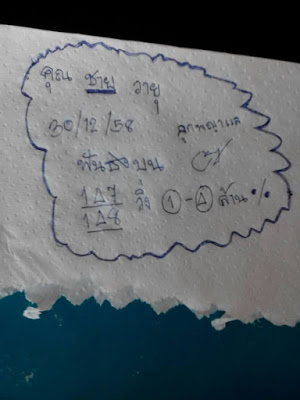 คุณ ชาย วายุ
30/12/58
ลูกพญาแล
ฟันธงบน
1Δ7
1Δ8
วิ่ง 1-Δ ล้าน%